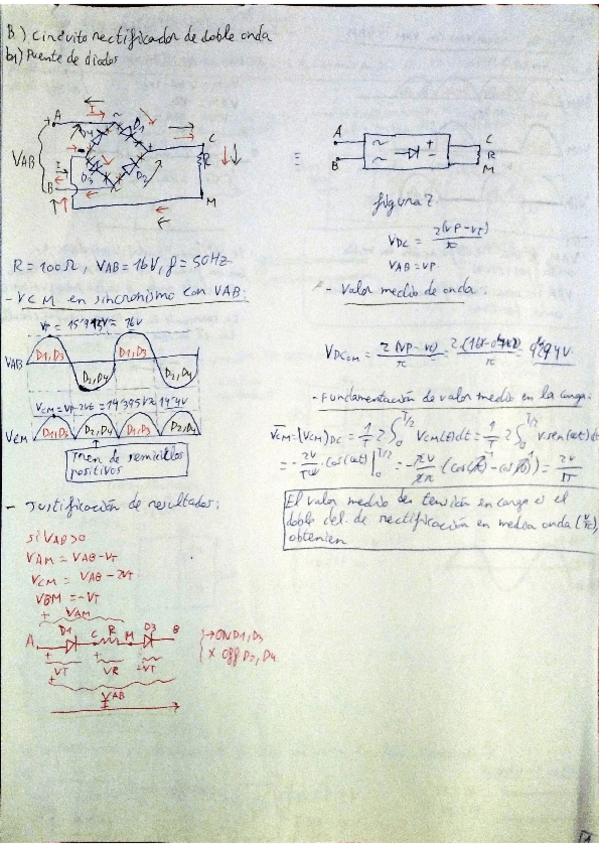 B) Circuito rectificador de doble onda
b1) Puente de diodos
A
I
~
D4
D1
VAB
C
R
D3
D2
I
B
~
M
≡
A
B
~
~
+
-
C
R
M
figura 7
VDC = 2(VP-VT)/π
VAB=VP
R=100Ω, VAB=16V, f=50Hz
- VCM en sincronismo con VAB:
VAB
D1,D3
D1,D3
D2,D4
D2,D4
VCM=VP-2VT=14'395V≈14'4V
VCM
D1,D3
D2,D4
D1,D3
D2,D4
Tren de semiciclos
positivos
- Valor medio de onda:
- Fundamentación de valor medio en la carga:
V̄CM=(VCM)DC = 1/T 2∫₀^T/2 VCM(t)dt = 1/T 2∫₀^T/2 V sen(ωt)dt
= - 2V/Tω cos(ωt)|₀^T/2 = - 2V/2π (cos(π) - cos(0)) = 2V/π
El valor medio de tensión en carga es el
doble del de rectificación en media onda (V/π),
obtenien
- Justificación de resultados:
si VAB>0
VAM = VAB-VT
VCM = VAB-2VT
VBM=-VT
+ VAM
A D1 C R M D3 B
→ ON D1,D3
X Off D2,D4
+ VT
+ VR
VT
+ VAB
I